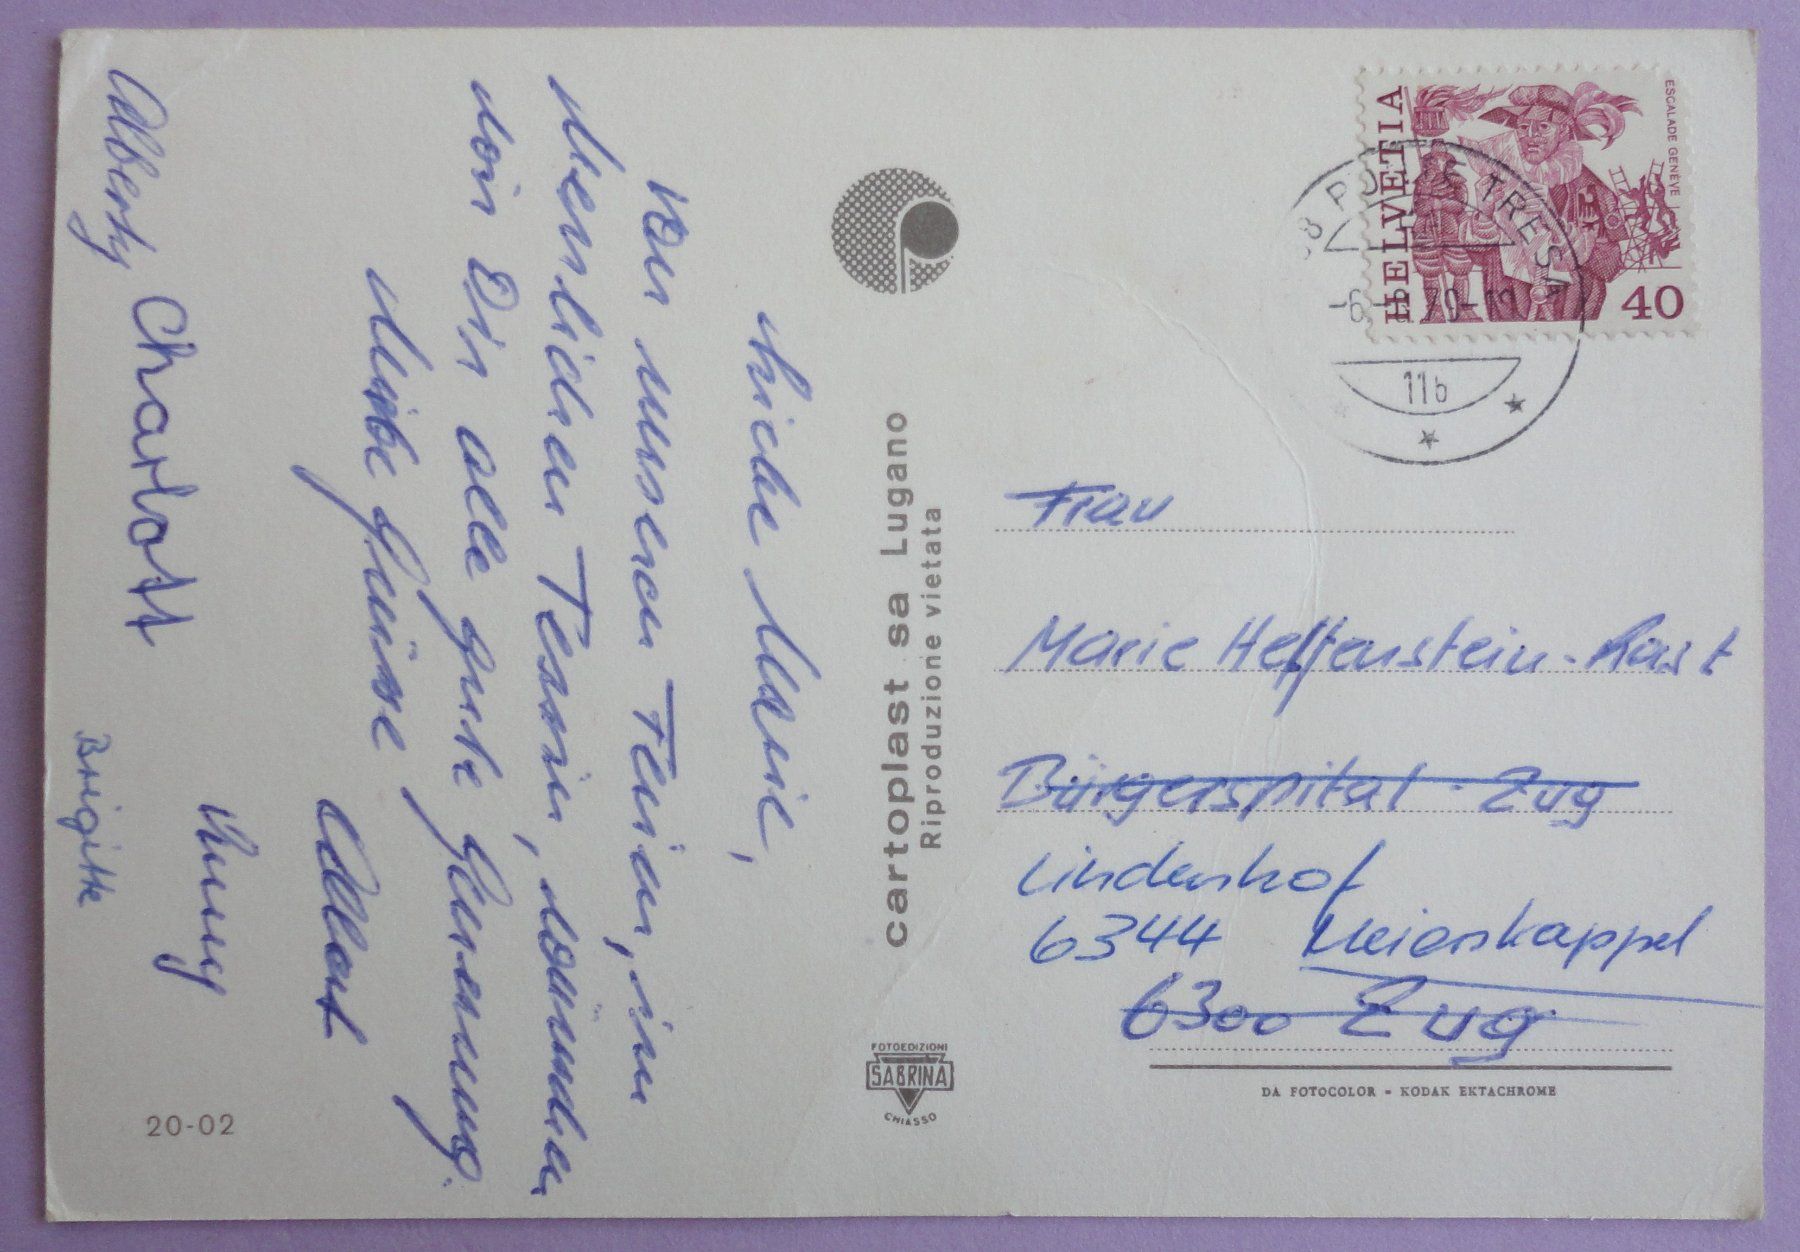 Liebe Marie,
Von unseren Ferien, im
herrlichen Tessin, wünschen
wir Dir alle gute Genesung.
Liebe Grüsse
Albert
Runy
Alberty Charlott
Brigitte
20-02
cartoplast sa Lugano
Riproduzione vietata
FOTOEDIZIONI
SABRINA
CHIASSO
HELVETIA
ESCALADE GENÈVE
40
PONTE TRESA
11b
Frau
Marie Helfenstein-Rast
Bürgerspital Zug
Lindenhof
6344 Meierskappel
6300 Zug
DA FOTOCOLOR - KODAK EKTACHROME